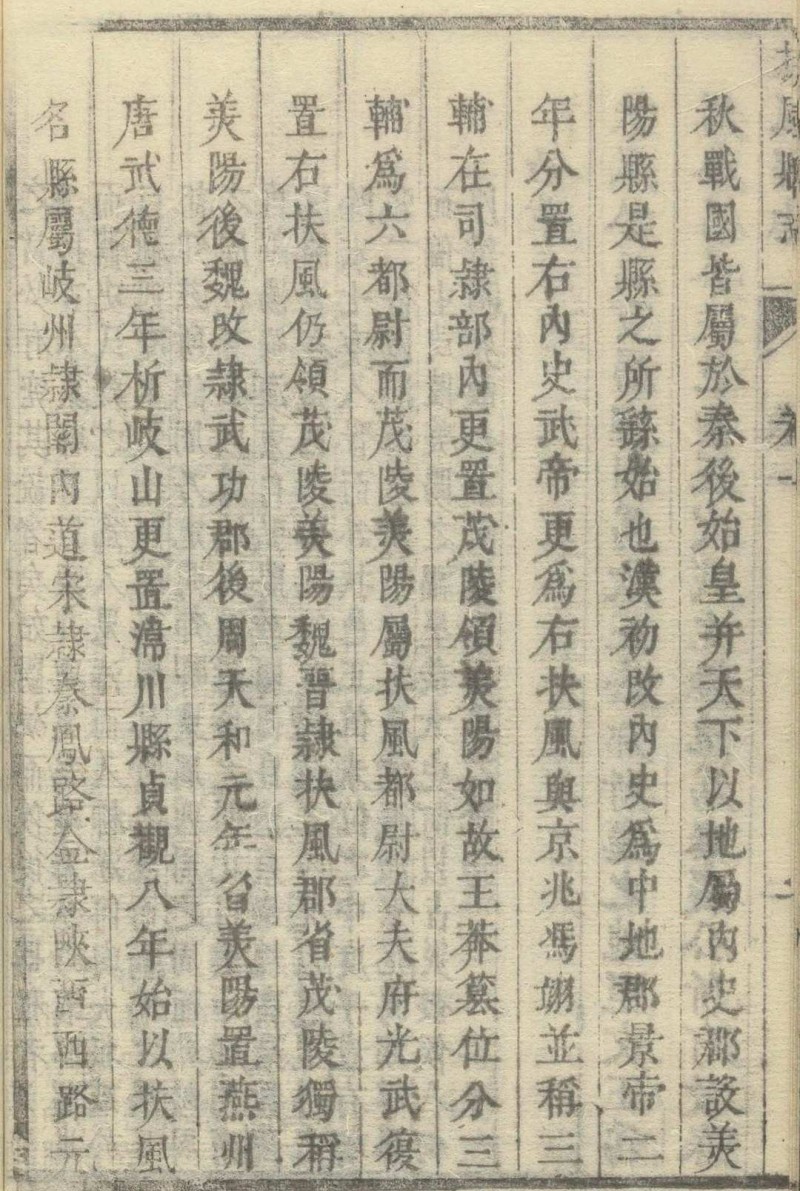 扶風縣志 卷一 二
秋戰國皆屬於秦後始皇并天下以地屬內史郡設美
陽縣是縣之所繇始也漢初改內史爲中地郡景帝二
年分置右內史武帝更爲右扶風與京兆馮翊並稱三
輔在司隸部內更置茂陵領美陽如故王莽簒位分三
輔爲六都尉而茂陵美陽屬扶風都尉大夫府光武復
置右扶風仍領茂陵美陽魏晉隸扶風郡省茂陵獨稱
美陽後魏改隸武功郡後周天和元年省美陽置燕州
唐武德三年析岐山更置湋川縣貞觀八年始以扶風
名縣屬岐州隸關內道宋隸秦鳳路金隸陝西西路元